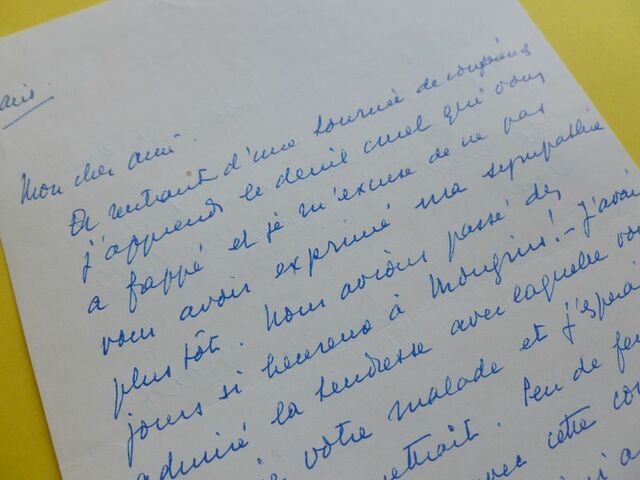 Mon cher ami.
En rentrant d'une tournée de conférences
j'apprends le deuil cruel qui vous
a frappé et je m'excuse de ne pas
vous avoir exprimé ma sympathie
plus tôt. Nous avions passé des
jours si heureux à Mougins! - J'avai
admiré la tendresse avec laquelle vou
votre malade et j'espérai
Peu de fe
avec cette co